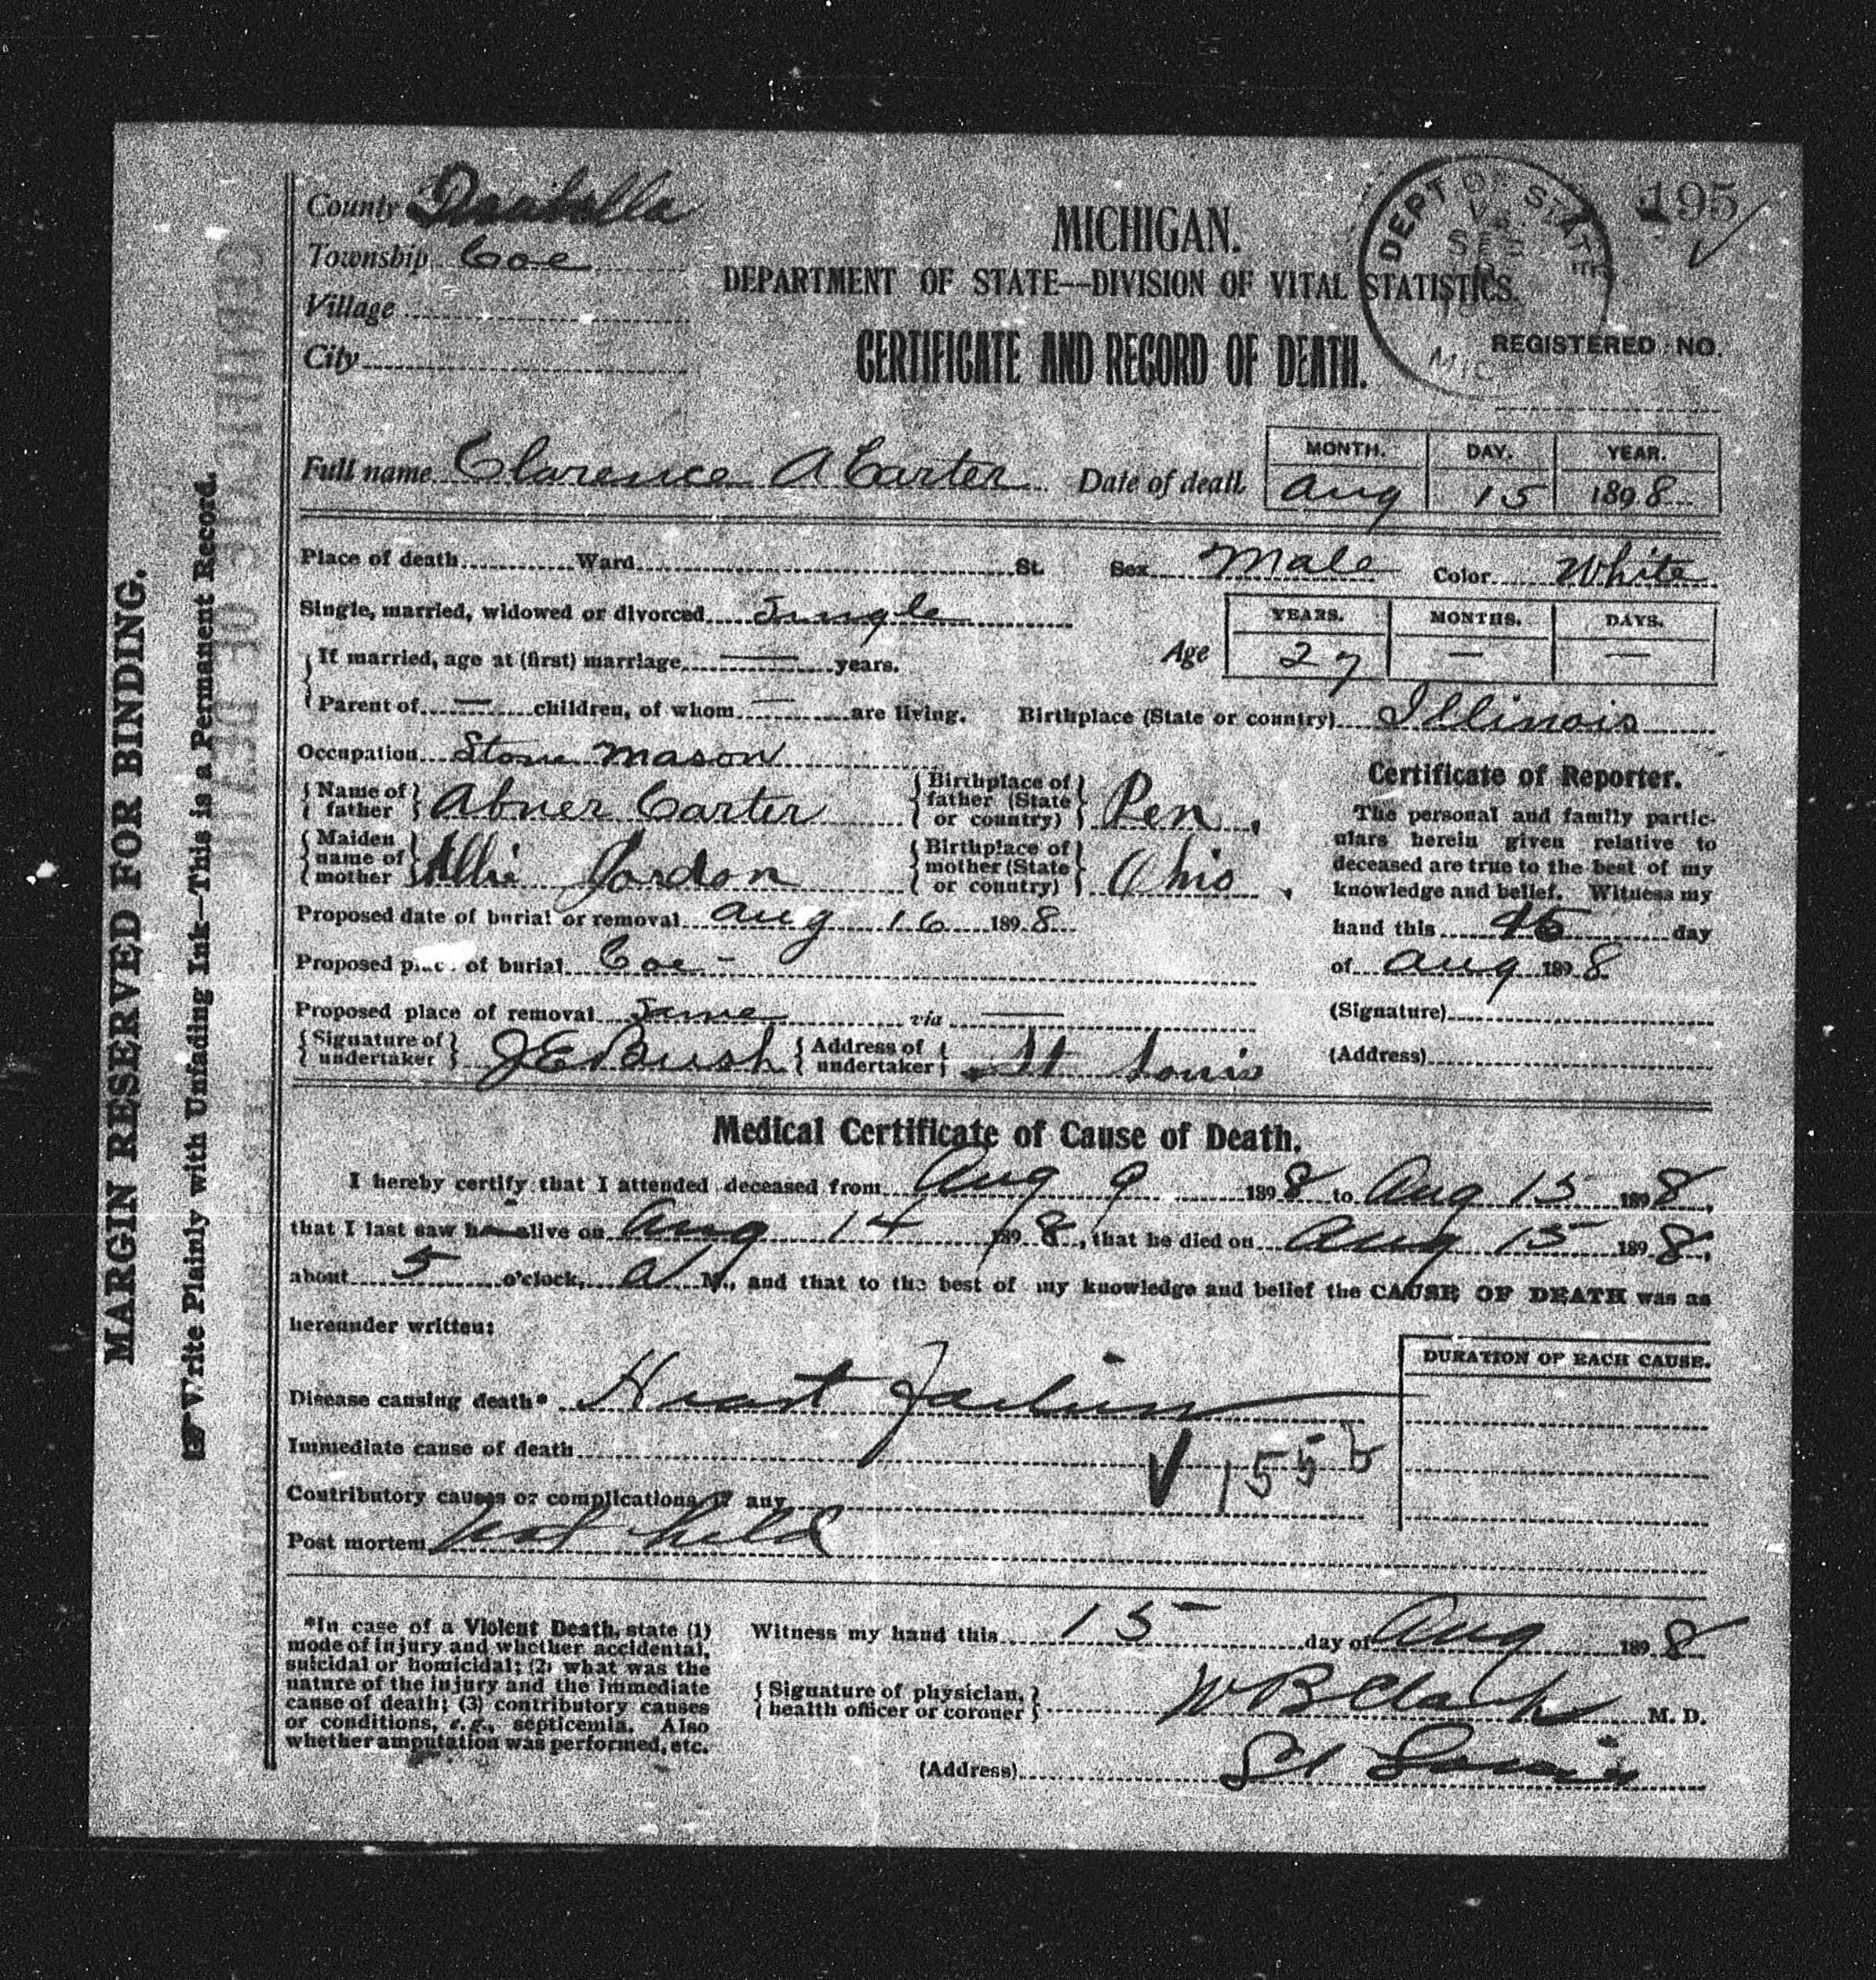 195
County Isabella
Township Coe
Village
City
MICHIGAN.
DEPARTMENT OF STATE—DIVISION OF VITAL STATISTICS.
CERTIFICATE AND RECORD OF DEATH.
DEPT OF STATE
SEP
MICH
REGISTERED NO.
Full name Clarence A Carter Date of death
MONTH. DAY. YEAR.
Aug 15 1898
Place of death Ward St. Sex Male Color White
Single, married, widowed or divorced Single
If married, age at (first) marriage — years.
Age
YEARS. MONTHS. DAYS.
27 — —
Parent of — children, of whom — are living. Birthplace (State or country) Illinois
Occupation Stone Mason
Name of father Abner Carter Birthplace of father (State or country) Pen.
Maiden name of mother Allie Jordon Birthplace of mother (State or country) Ohio
Proposed date of burial or removal Aug 16 1898
Proposed place of burial Coe -
Proposed place of removal Same via —
Signature of undertaker J E Bush Address of undertaker St Louis
Certificate of Reporter.
The personal and family partic-
ulars herein given relative to
deceased are true to the best of my
knowledge and belief. Witness my
hand this 15 day
of Aug 1898
(Signature)
(Address)
Medical Certificate of Cause of Death.
I hereby certify that I attended deceased from Aug 9 1898 to Aug 15 1898,
that I last saw h alive on Aug 14 1898, that he died on Aug 15 1898,
about 5 o'clock, A M., and that to the best of my knowledge and belief the CAUSE OF DEATH was as
hereunder written:
DURATION OF EACH CAUSE.
Disease causing death* Heart Failure
Immediate cause of death
155 b
Contributory causes or complications, if any
Post mortem not held
*In case of a Violent Death, state (1)
mode of injury and whether accidental,
suicidal or homicidal; (2) what was the
nature of the injury and the immediate
cause of death; (3) contributory causes
or conditions, e. g., septicemia. Also
whether amputation was performed, etc.
Witness my hand this 15 day of Aug 1898
Signature of physician, health officer or coroner W B Clark M. D.
(Address) St Louis
MARGIN RESERVED FOR BINDING.
☞Write Plainly with Unfading Ink—This is a Permanent Record.